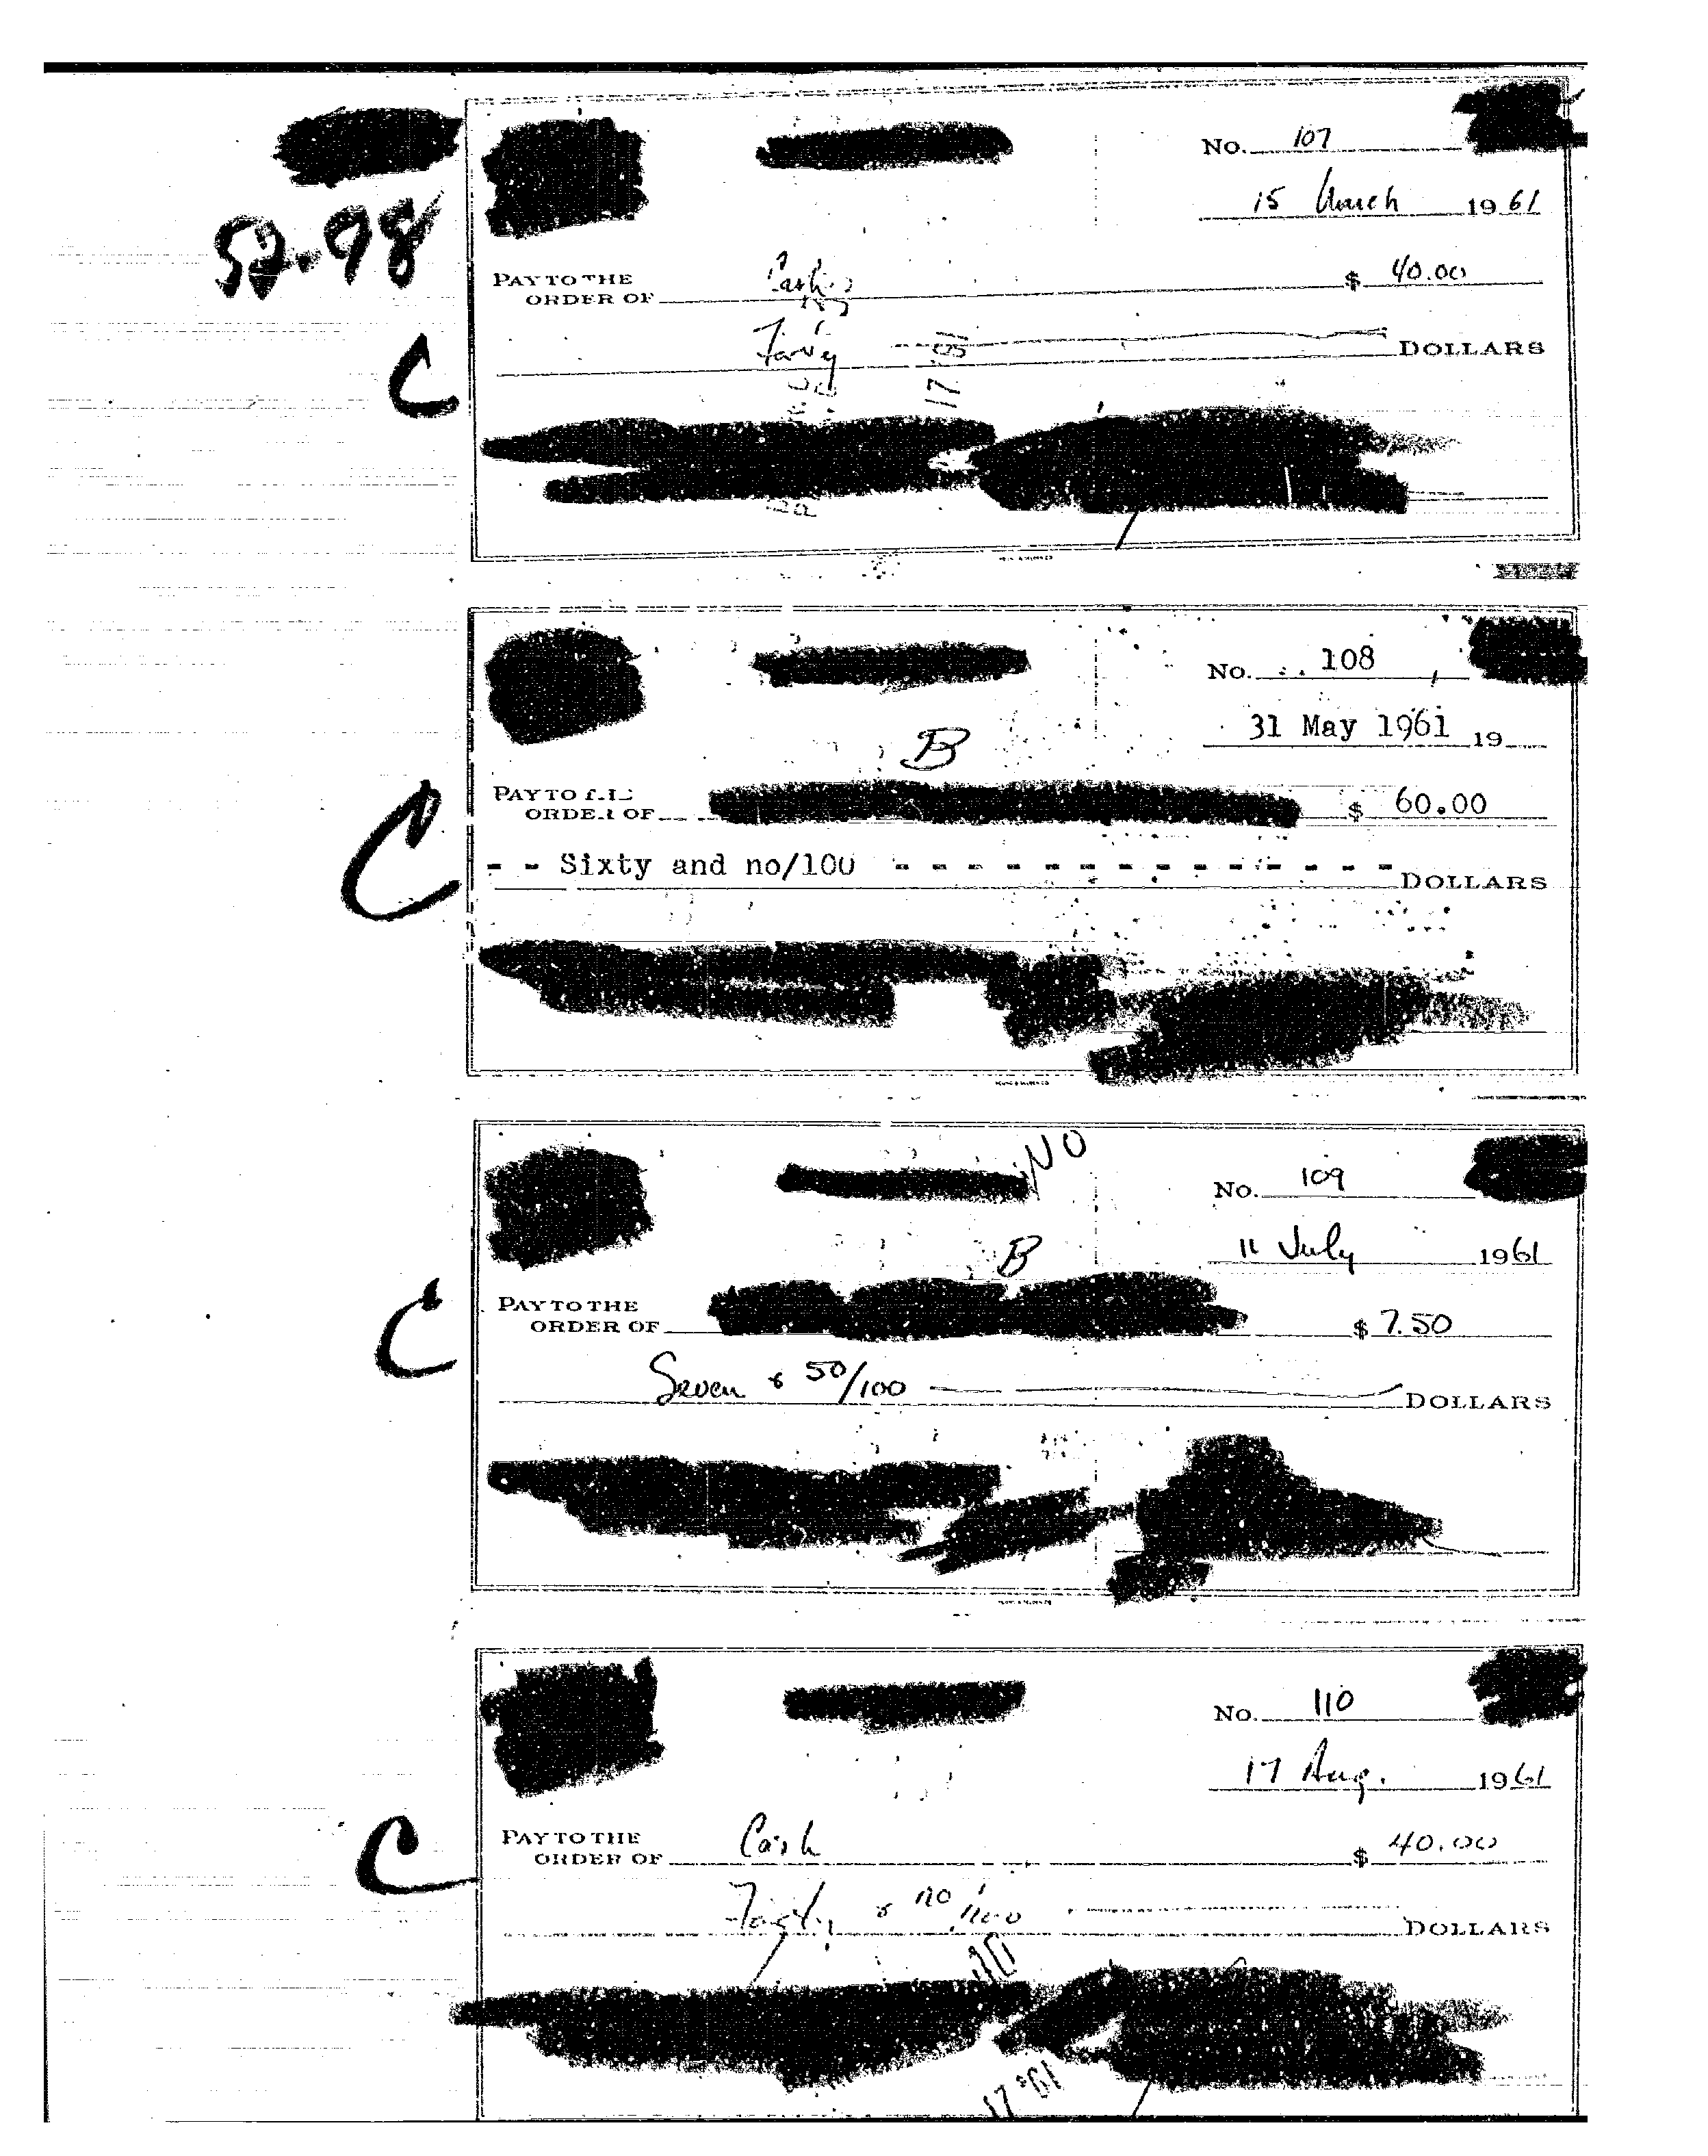 52-98
No. 107
15 March 19 61
PAY TO THE
ORDER OF Cash $ 40.00
Forty DOLLARS
17 '61
C
No. 108
31 May 1961 19
B
PAY TO
ORDER OF $ 60.00
- - Sixty and no/100 - - - - - - - - - - - - - - DOLLARS
C
NO
No. 109
11 July 19 61
B
PAY TO THE
ORDER OF $ 7.50
Seven & 50/100 DOLLARS
C
No. 110
17 Aug. 19 61
PAY TO THE
ORDER OF Cash $ 40.00
Forty & no/100 DOLLARS
C
17 '61